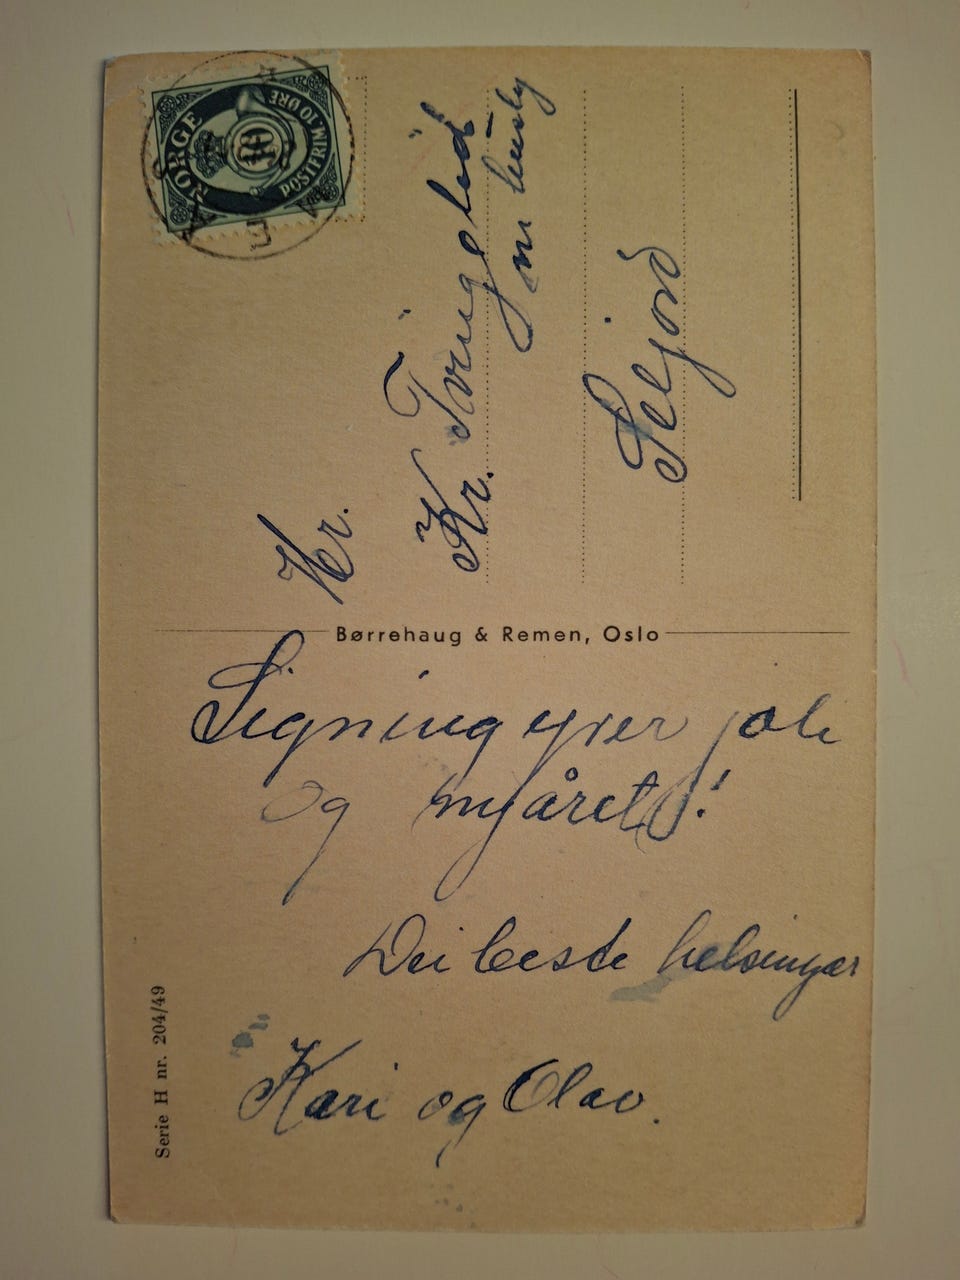 NORGE
POSTFRIM. 10 ØRE
10
Hr.
Kr.
m huslyd
Seljord
Børrehaug & Remen, Oslo
Signing yver joli
og nyåret!
Dei beste helsingar
Kari og Olav.
Serie H nr. 204/49